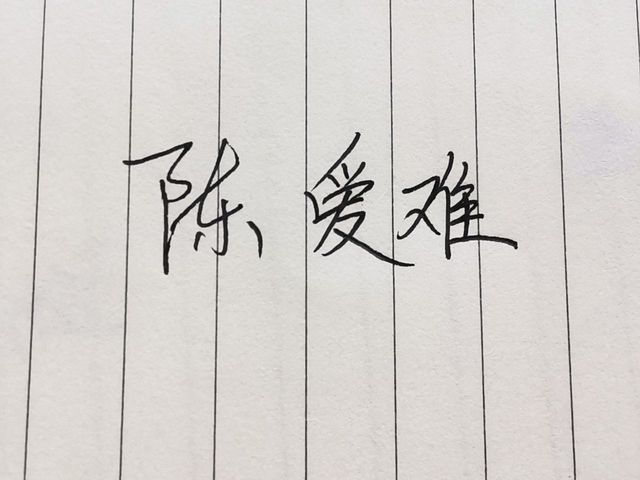 陈爱难